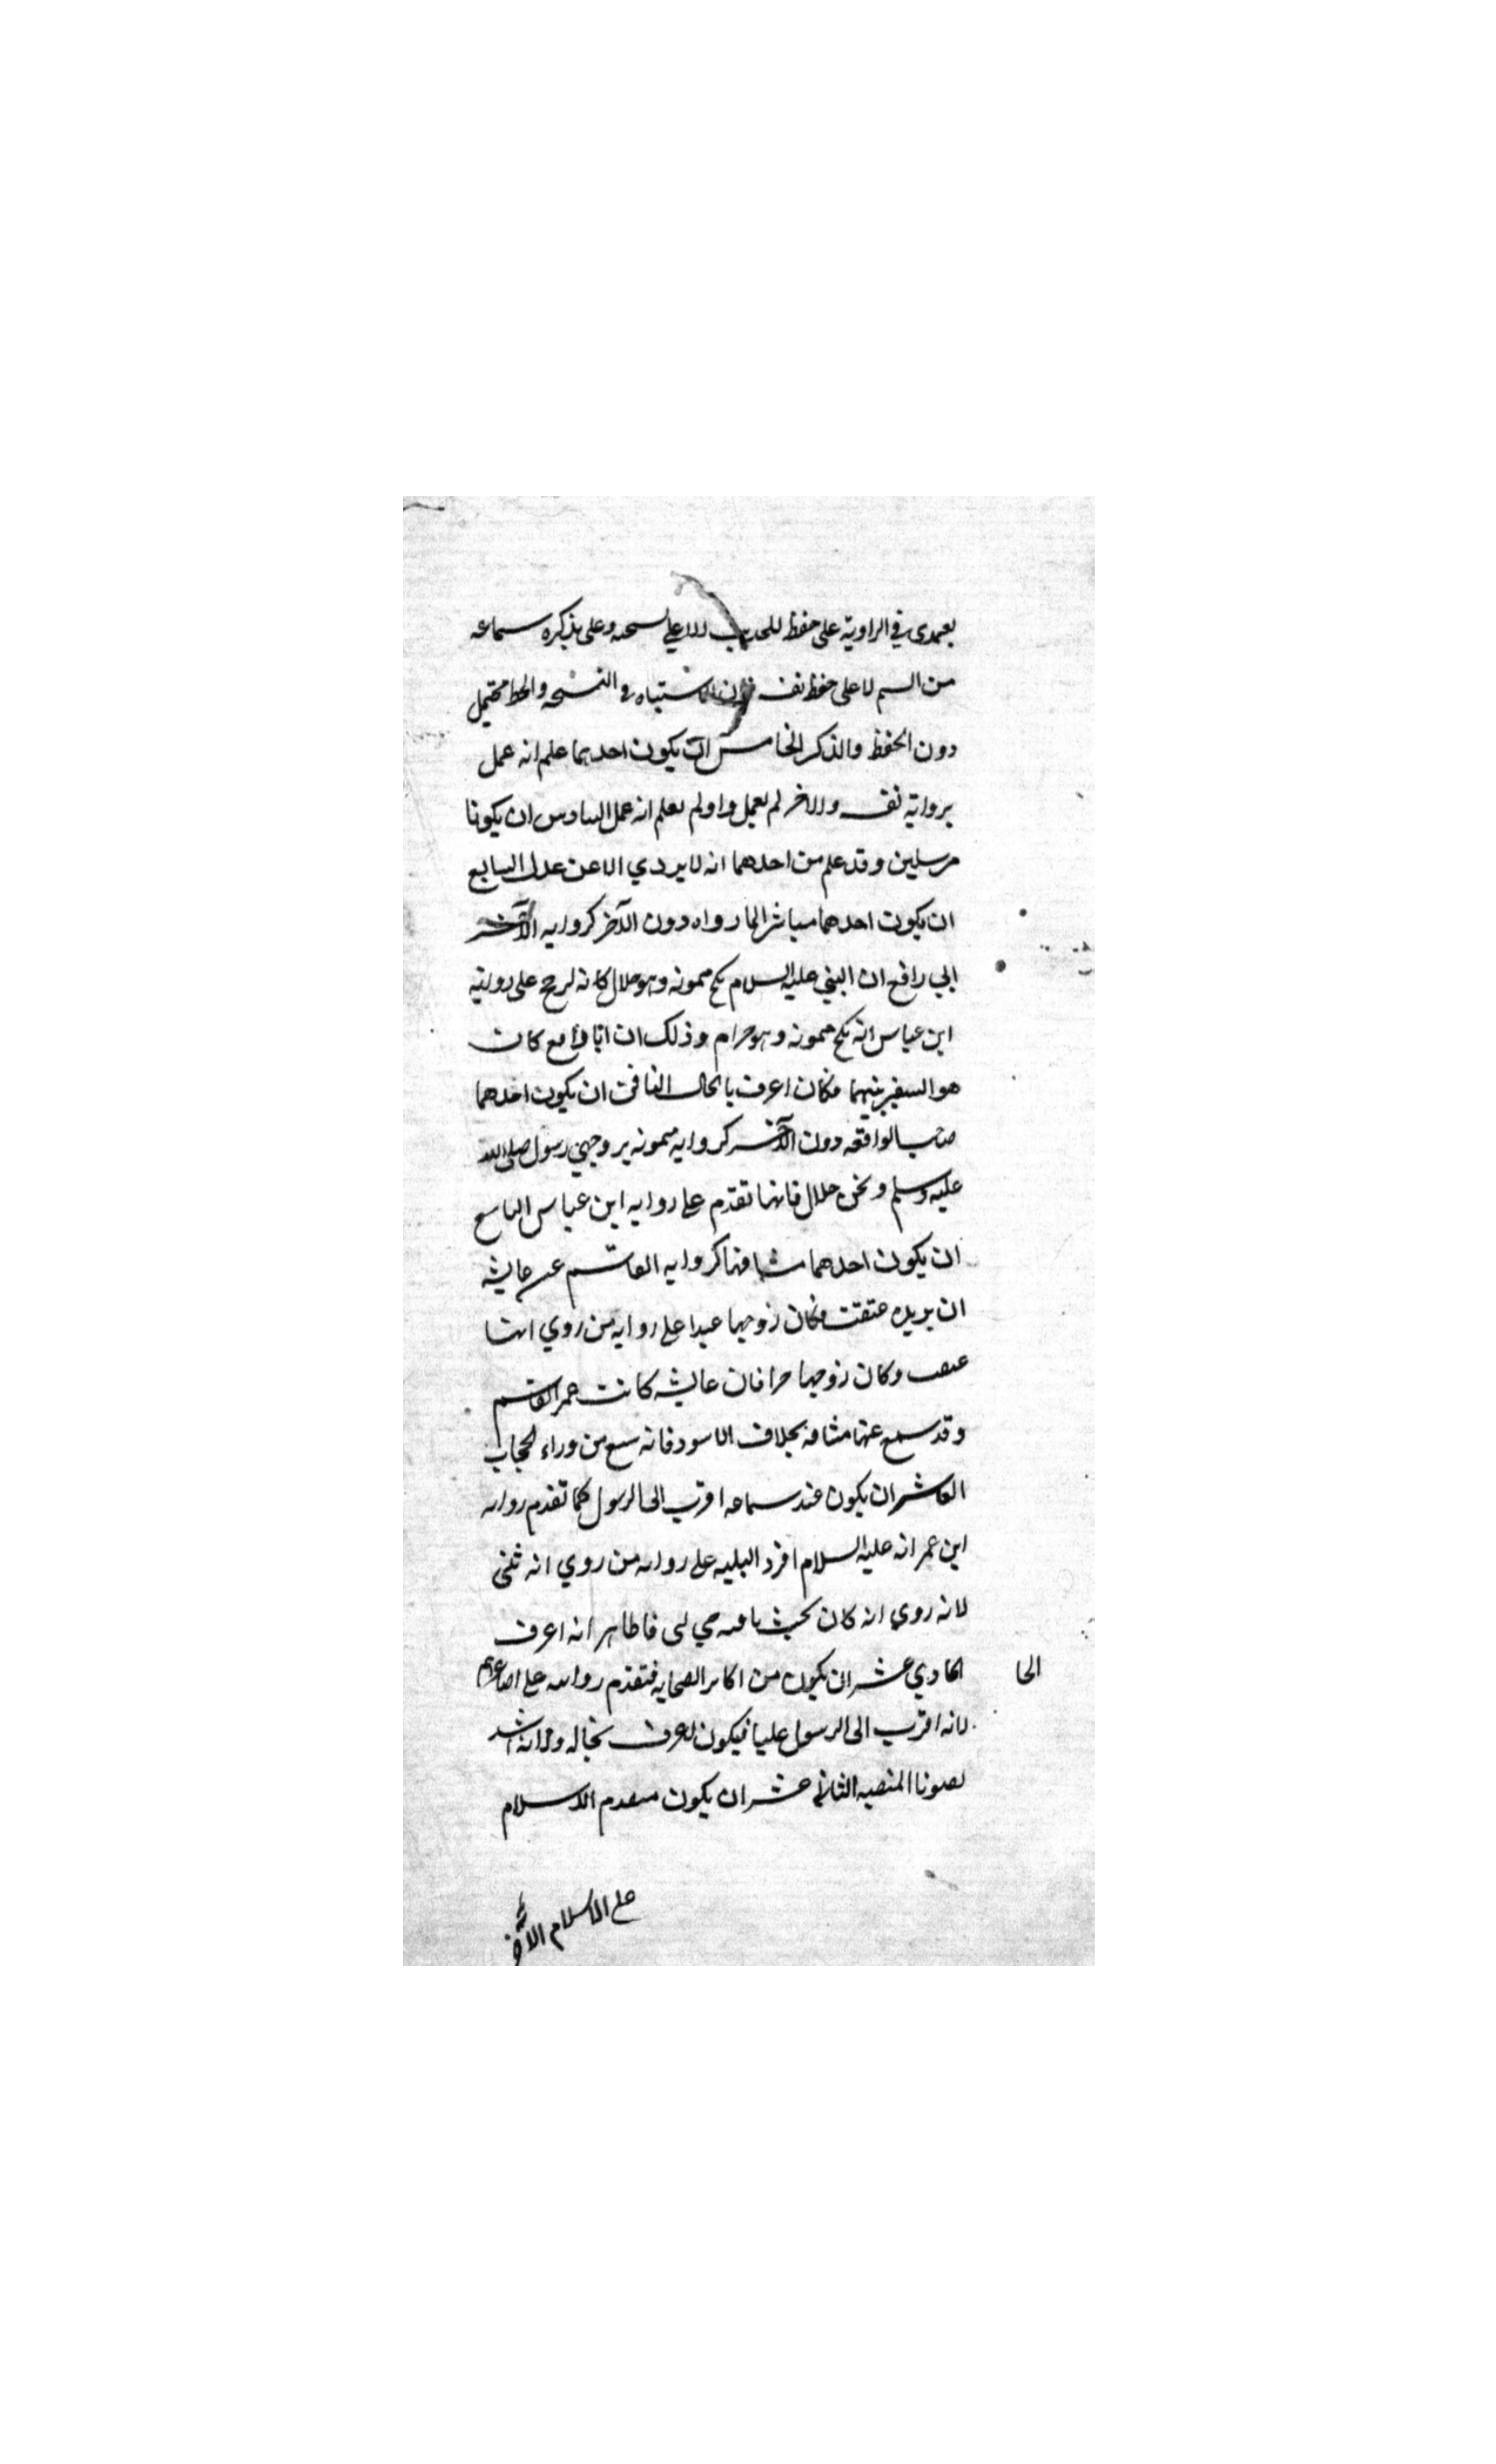 يعتمدى في الراوية على حفظ للحديث لا على نسخه وعلى بذكره سماعه
من السم لا على حفظ نفسه فان الاشتباه في النسخه والخط محتمل
دون الحفظ والذكر الخامس ان يكون احدهما علم انه عمل
بروايته نفسه والاخر لم يعمل او لم يعلم انه عمل السادس ان يكونا
مرسلين وقد علم من احدهما انه لا يردي الا عن عدل السابع
ان يكون احدهما مباشر الما رواه دون الآخر كروايه الآخر
ابي رافع ان النبي عليه السلام نكح ميمونه وهو حلال فانه يرجح على روايته
ابن عباس انه نكح ميمونه وهو حرام وذلك ان ابا رافع كان
هو السفير بينهما فكان اعرف بالحال الثامن ان يكون احدهما
صاحب الواقعه دون الآخر كروايه ميمونه يزوجني رسول صلى الله
عليه وسلم ونحن حلال فانها تقدّم على روايه ابن عباس التاسع
ان يكون احدهما مشافها كروايه القاسم عن عايشه
ان بريده عتقت فكان زوجها عبدا على روايه من روي انها
عتقت وكان زوجها حرا فان عايشه كانت عمه القاسم
وقد سمع عنها مشافه بخلاف الاسود فانه سمع من وراء الحجاب
العاشر ان يكون عند سماعه اقرب الى الرسول كما تقدم روايه
ابن عمر انه عليه السلام افرد التلبيه على روايه من روي انه ثنى
لانه روي انه كان تحت ناقته حي لبى فالظاهر انه اعرف
الحا
الحادي عشر ان يكون من اكابر الصحابه فتقدم روايته على اصاغرهم
لانه اقرب الى الرسول غالبا فيكون اعرف بحاله ولانه اشد
تصونا لمنصبه الثاني عشر ان يكون متقدم الاسلام
على الاسلام الآخر